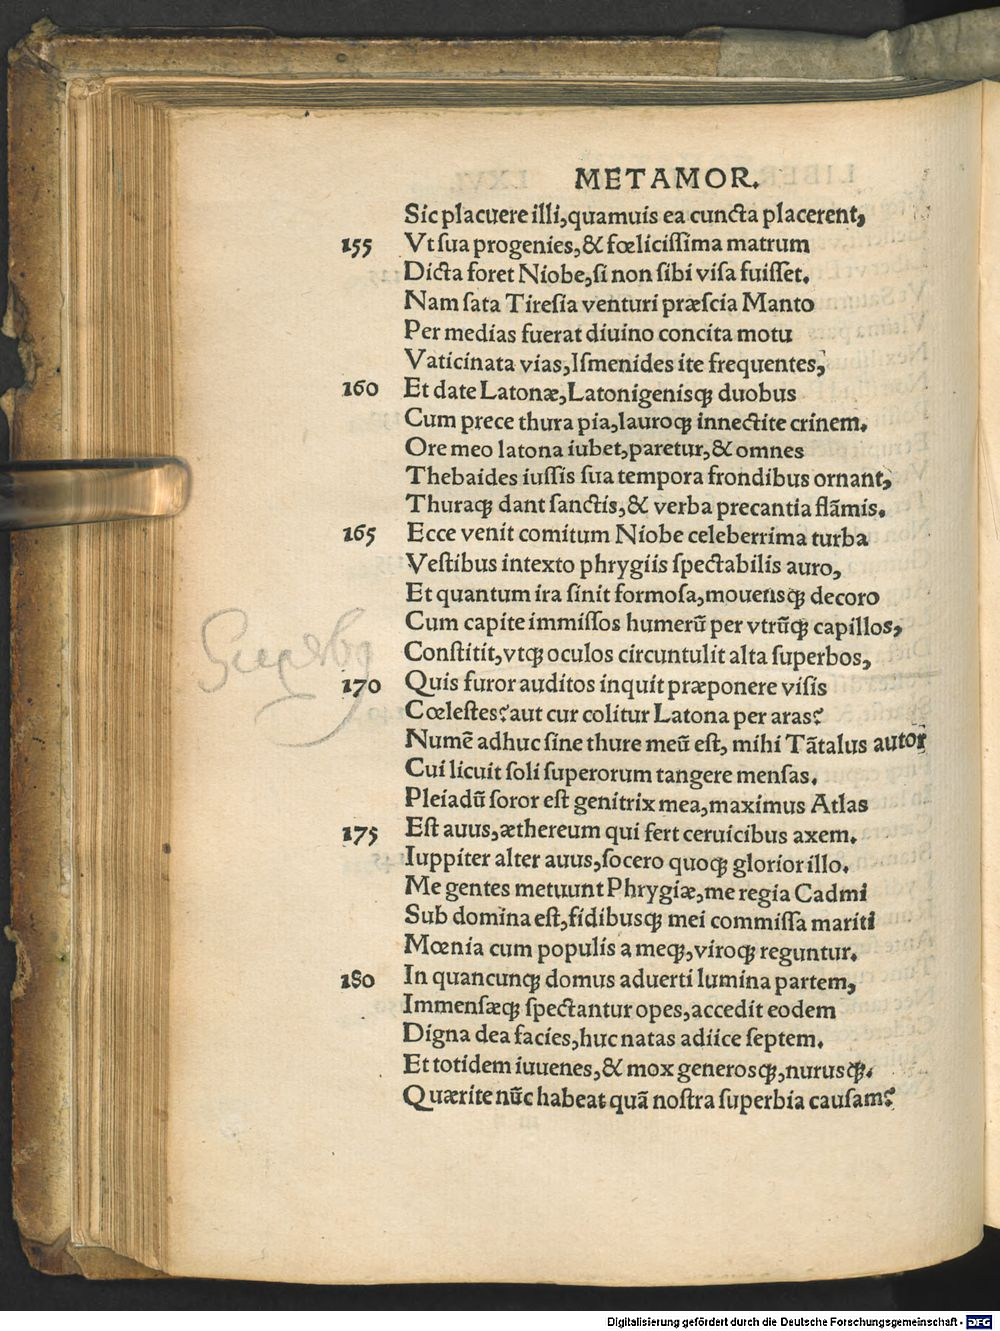 METAMOR.
Sic placuere illi, quamuis ea cuncta placerent,
155 Vt sua progenies, & fœlicissima matrum
Dicta foret Niobe, si non sibi visa fuisset.
Nam sata Tiresia venturi præscia Manto
Per medias fuerat diuino concita motu
Vaticinata vias, Ismenides ite frequentes,
160 Et date Latonæ, Latonigenisqꝫ duobus
Cum prece thura pia, lauroqꝫ innectite crinem.
Ore meo latona iubet, paretur, & omnes
Thebaides iussis sua tempora frondibus ornant,
Thuraqꝫ dant sanctis, & verba precantia flãmis.
165 Ecce venit comitum Niobe celeberrima turba
Vestibus intexto phrygiis spectabilis auro,
Et quantum ira sinit formosa, mouensqꝫ decoro
Cum capite immissos humerũ per vtrũqꝫ capillos,
Constitit, vtqꝫ oculos circuntulit alta superbos,
170 Quis furor auditos inquit præponere visis
Cœlestes? aut cur colitur Latona per aras?
Numẽ adhuc sine thure meũ est, mihi Tãtalus autor
Cui licuit soli superorum tangere mensas.
Pleiadũ soror est genitrix mea, maximus Atlas
175 Est auus, æthereum qui fert ceruicibus axem.
Iuppiter alter auus, socero quoqꝫ glorior illo.
Me gentes metuunt Phrygiæ, me regia Cadmi
Sub domina est, fidibusqꝫ mei commissa mariti
Mœnia cum populis a meqꝫ, viroqꝫ reguntur.
180 In quancunqꝫ domus aduerti lumina partem,
Immensæqꝫ spectantur opes, accedit eodem
Digna dea facies, huc natas adiice septem.
Et totidem iuuenes, & mox generosqꝫ, nurusqꝫ.
Quærite nũc habeat quã nostra superbia causam?
Digitalisierung gefördert durch die Deutsche Forschungsgemeinschaft - DFG